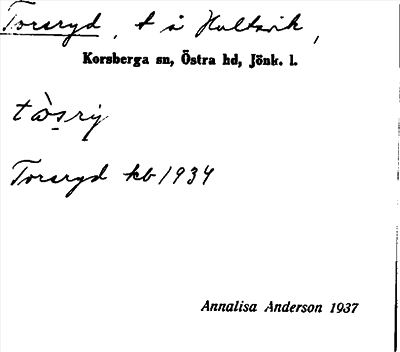 Torsryd, t å Hultsvik,
Korsberga sn, Östra hd, Jönk. l.
tòs̱ry
Torsryd kb 1934
Annalisa Anderson 1937